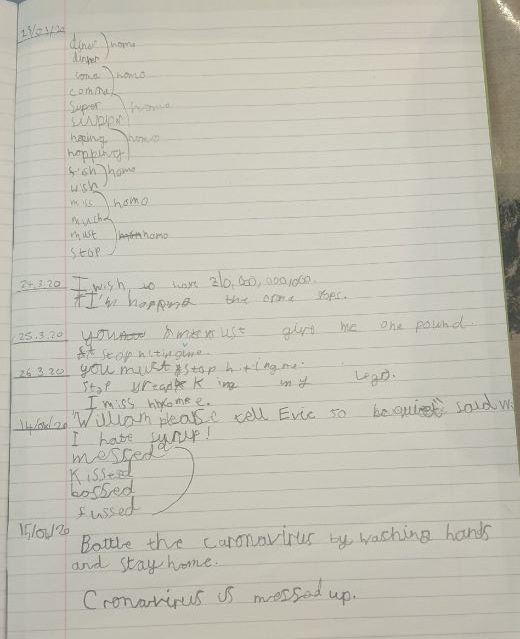 23/03/20 diner
dinner
home
coma
comma
home
super
supper
home
hoping
hopping
home
fish
wish
home
miss
much
homo
must
stop
homo
24.3.20 I wish to have 210,000,000,000.
I'm hopping the tops.
25.3.20 you must give me one pound.
stop hiting me.
26.3.20 you must stop hiting me.
Stop breaking my lego.
I miss home.
14/04/20 "William please tell Evie to be quiet" said
I hate syrup!
messed
kissed
bossed
fussed
15/04/20
Battle the caronavirus by washing hands
and stay home.
Cronavirus is messed up.